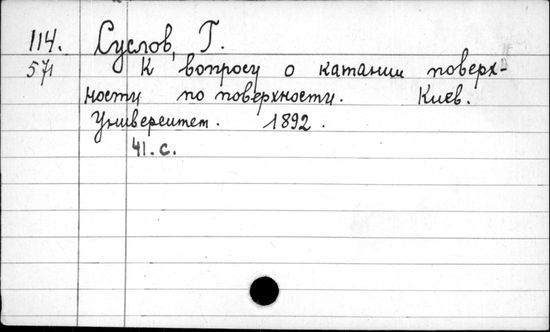 114. Суслов, Г.
571 К вопросу о катании поверх-
ности по поверхности. Киев.
Университет. 1892.
41. с.